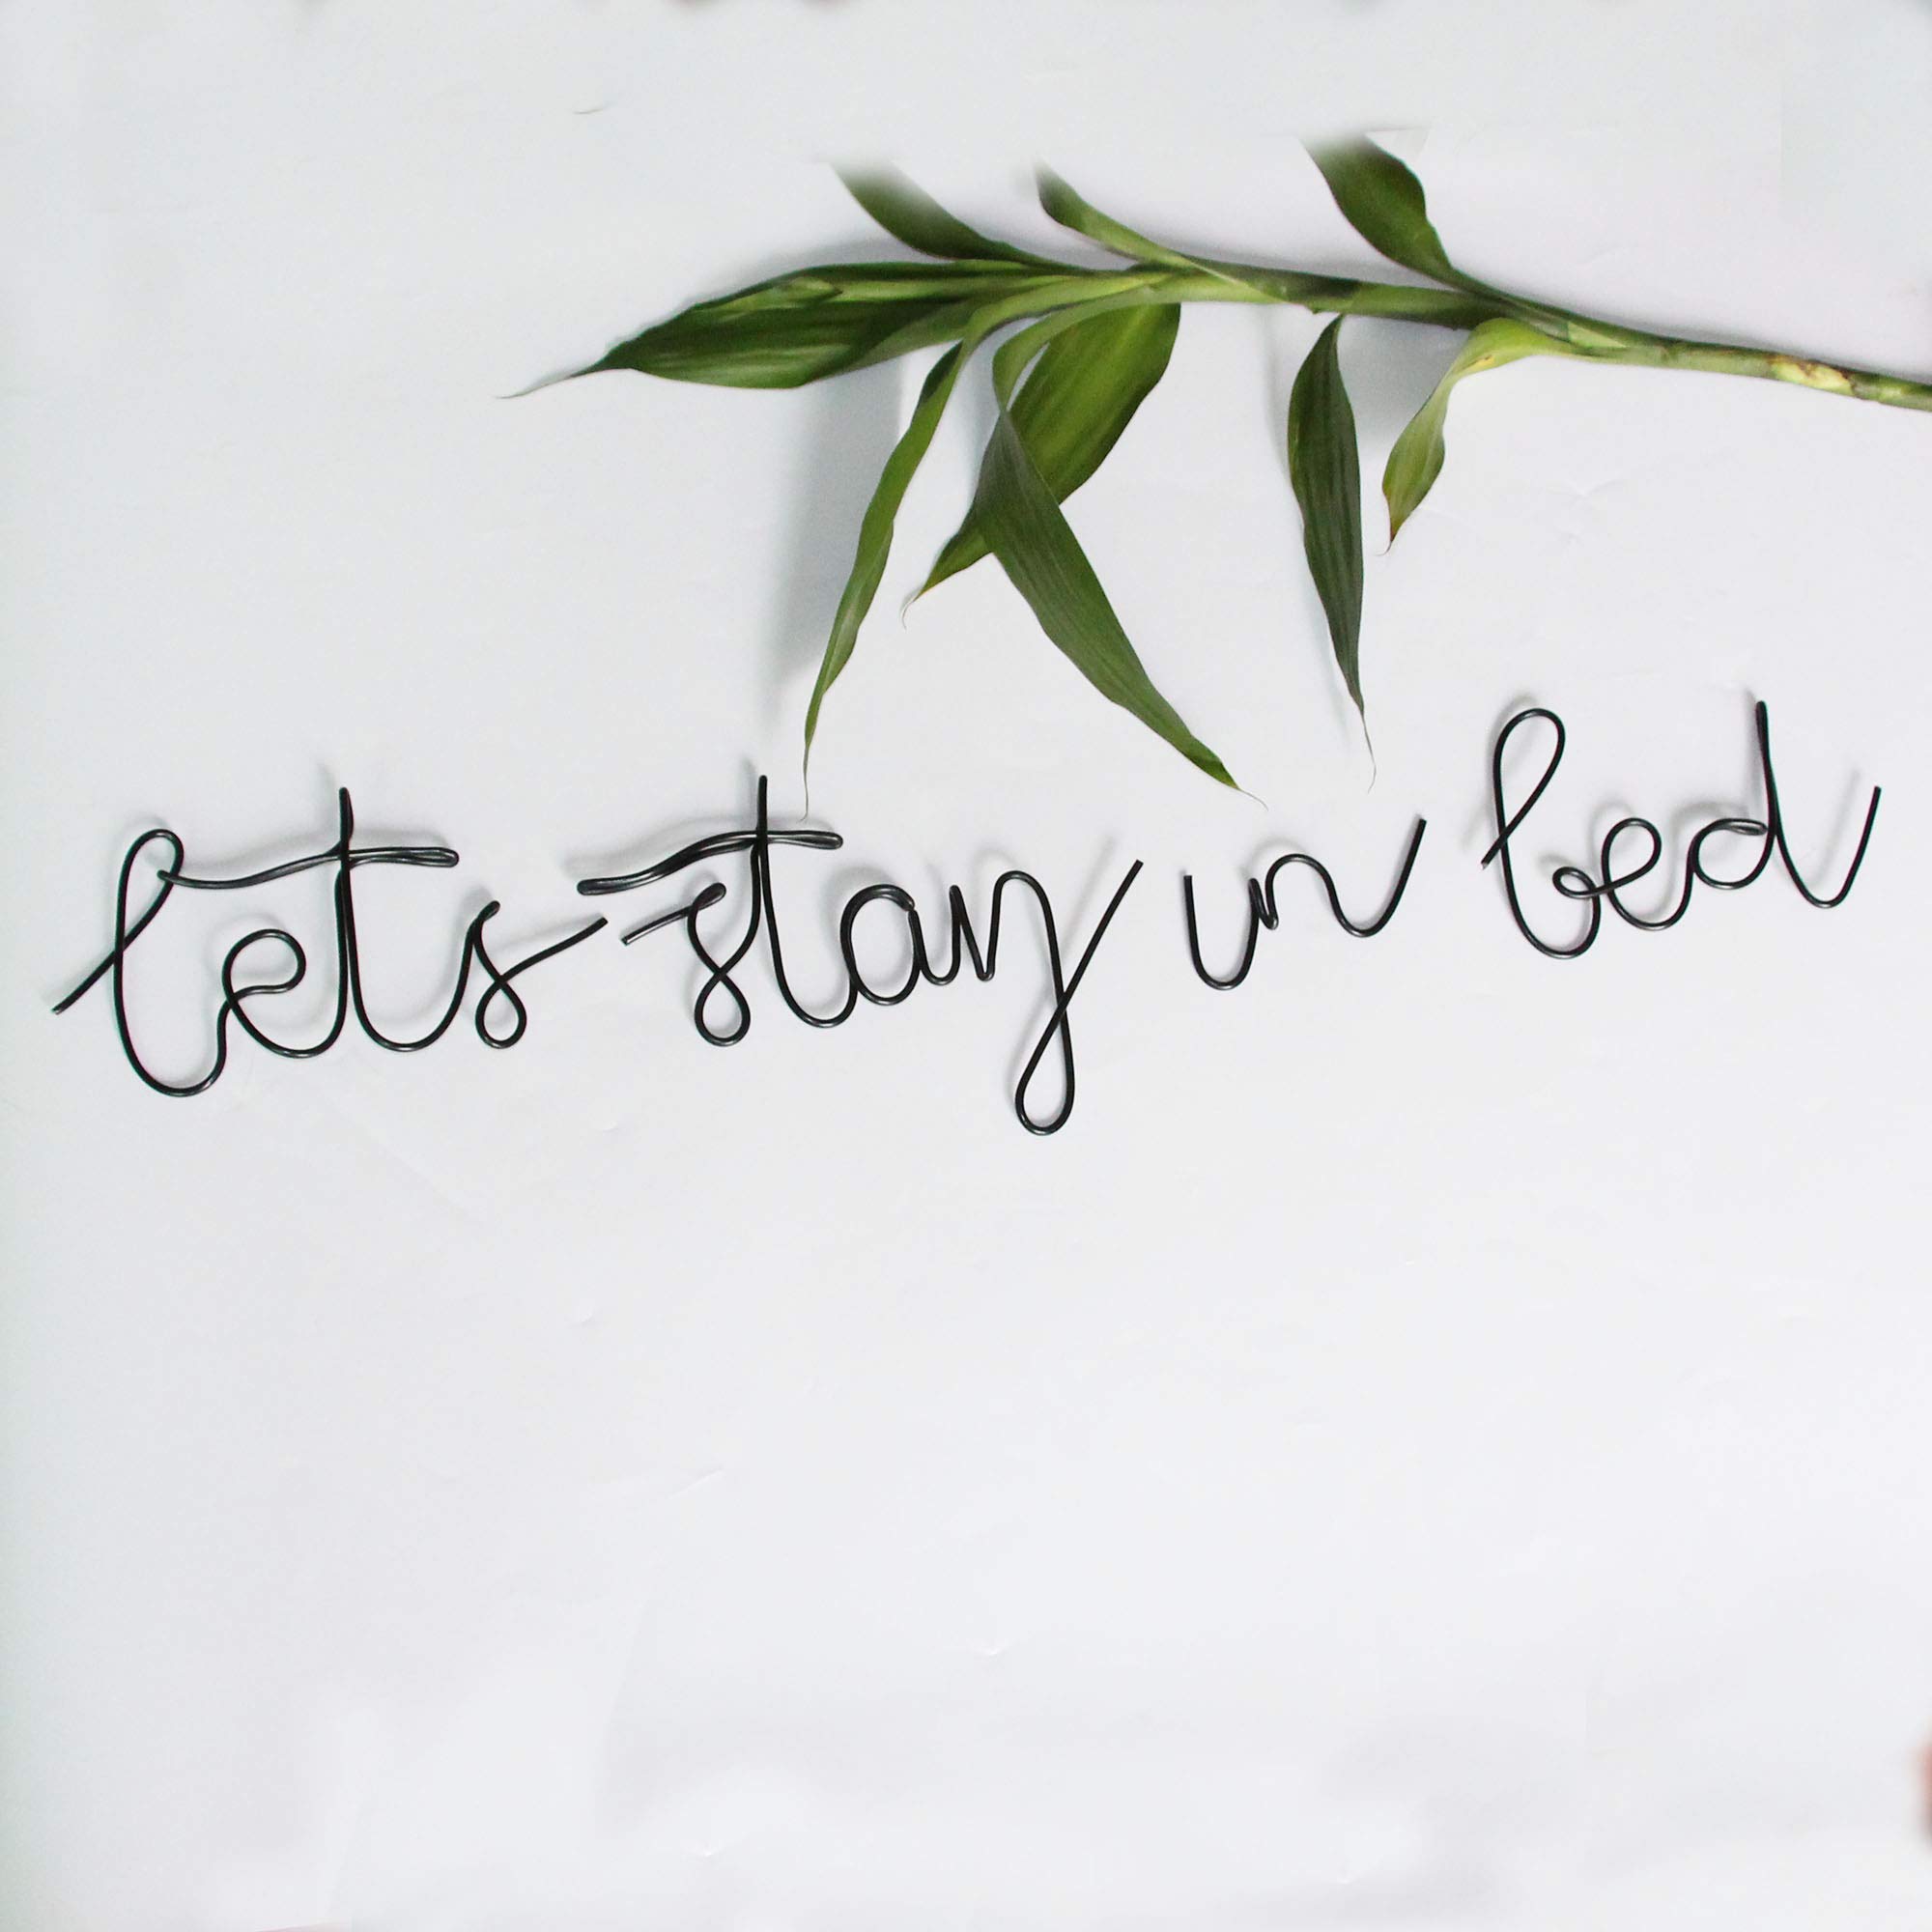 lets stay in bed